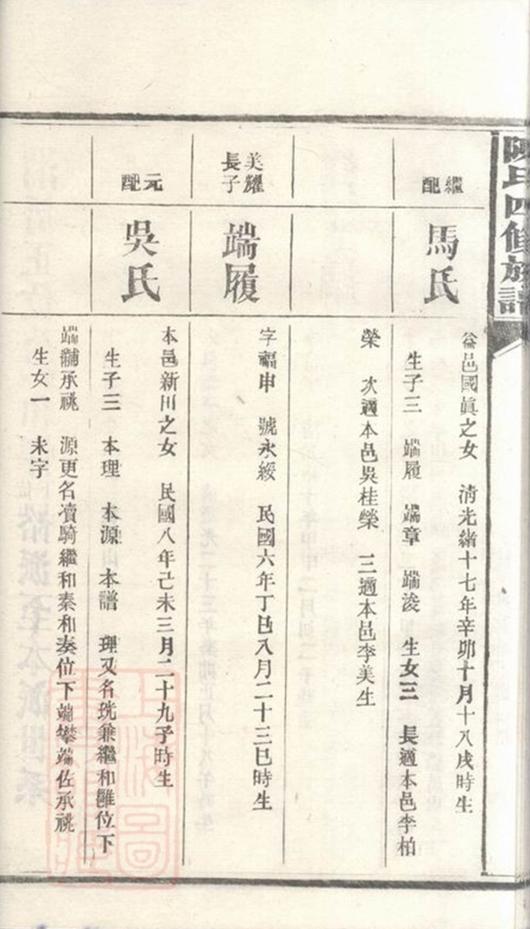 陳氏四修族譜
繼配
馬氏
益邑國眞之女 淸光緒十七年辛卯十月十八戌時生
生子三 端履 端章 端浚 生女三 長適本邑李柏
榮 次適本邑吳桂榮 三適本邑李美生
美耀長子
端履
字福申 號永綏 民國六年丁巳八月二十三巳時生
元配
吳氏
本邑新田之女 民國八年己未三月二十九子時生
生子三 本理 本源 本譜 理又名珖兼繼和雝位下
端黼承祧 源更名讀騎繼和秦和湊位下端攀端佐承祧
生女一 未字
上海圖